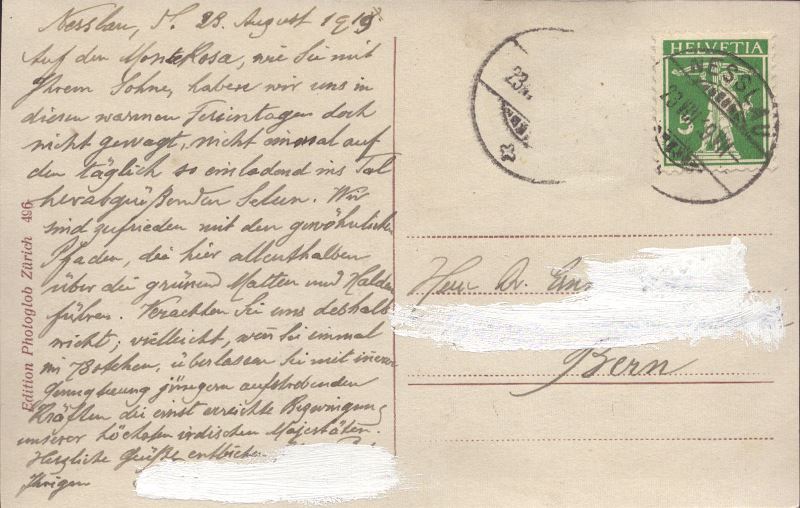 Nesslau, d. 23. August 1919
Auf den Monte Rosa, wie Sie mit
Ihrem Sohne, haben wir uns in
diesen warmen Ferientagen doch
nicht gewagt, nicht einmal auf
den täglich so einladend ins Tal
herabgrüßenden Selun. Wir
sind zufrieden mit den gewöhnlichen
Pfaden, die hier allenthalben
über die grünen Matten und Halden
führen. Verachten Sie uns deshalb
nicht; vielleicht, wenn Sie einmal
überlassen Sie mit innerer
Genugtuung jüngern aufstrebenden
Kräften die einst erreichte Bezwingung
unserer höchsten irdischen Majestäten.
Herzliche Grüße entbieten
Ihrigen
Edition Photoglob Zürich 496
HELVETIA
5
NESSLAU
23
Herr Dr.
Bern